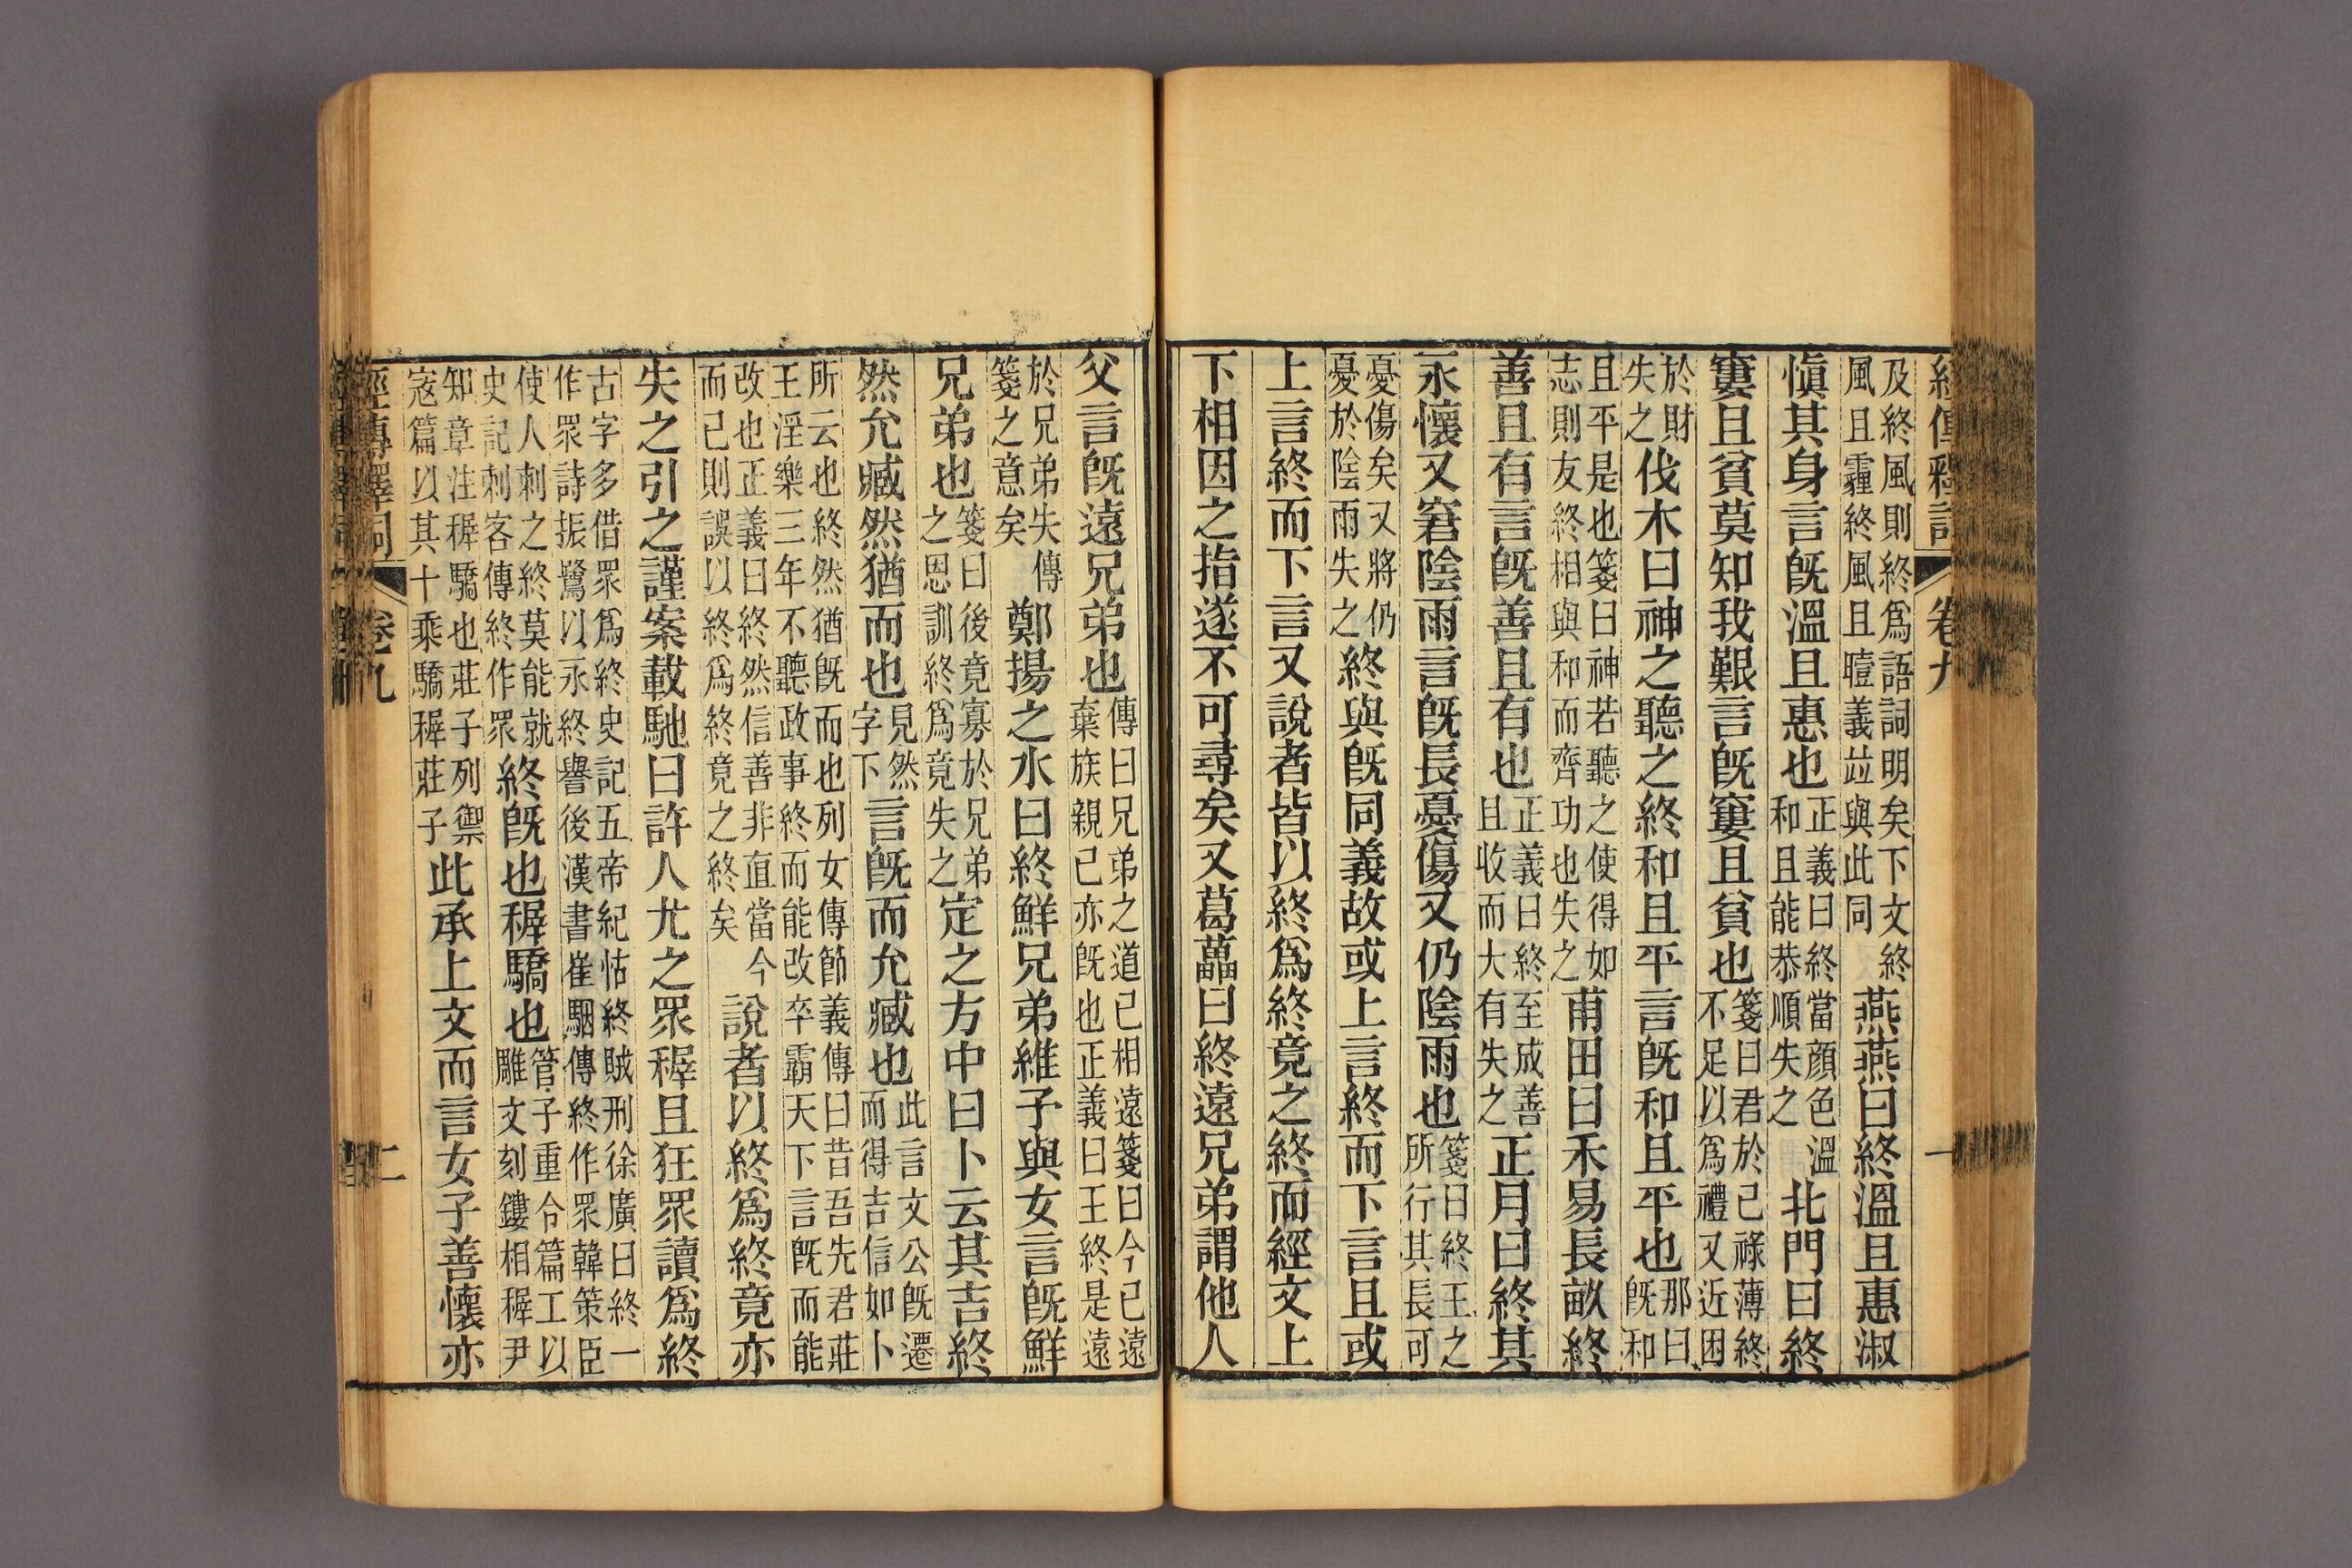 經傳釋詞 卷九 一
及終風則終爲語詞明矣下文終
風且霾終風且曀義竝與此同
燕燕曰終溫且惠淑
愼其身言旣溫且惠也
正義曰終當顏色溫
和且能恭順失之
北門曰終
窶且貧莫知我艱言旣窶且貧也
箋曰君於己祿薄終
不足以爲禮又近困
於財
失之
伐木曰神之聽之終和且平言旣和且平也
那曰
旣和
且平是也箋曰神若聽之使得如
志則友終相與和而齊功也失之
甫田曰禾易長畝終
善且有言旣善且有也
正義曰終至成善
且收而大有失之
正月曰終其
永懷又窘陰雨言旣長憂傷又仍陰雨也
箋曰終王之
所行其長可
憂傷矣又將仍
憂於陰雨失之
終與旣同義故或上言終而下言且或
上言終而下言又說者皆以終爲終竟之終而經文上
下相因之指遂不可尋矣又葛藟曰終遠兄弟謂他人
父言旣遠兄弟也
傳曰兄弟之道已相遠箋曰今已遠
棄族親已亦旣也正義曰王終是遠
於兄弟失傳
箋之意矣
鄭揚之水曰終鮮兄弟維予與女言旣鮮
兄弟也
箋曰後竟寡於兄弟
之恩訓終爲竟失之
定之方中曰卜云其吉終
然允臧然猶而也
見然
字下
言旣而允臧也
此言文公旣遷
而得吉信如卜
所云也終然猶旣而也列女傳節義傳曰昔吾先君莊
王淫樂三年不聽政事終而能改卒霸天下言旣而能
改也正義曰終然信善非直當今
而已則誤以終爲終竟之終矣
說者以終爲終竟亦
失之引之謹案載馳曰許人尤之眾穉且狂眾讀爲終
古字多借眾爲終史記五帝紀怙終賊刑徐廣曰終一
作眾詩振鷺以永終譽後漢書崔駰傳終作眾韓策臣
使人刺之終莫能就
史記刺客傳終作眾
終旣也穉驕也
管子重令篇工以
雕文刻鏤相穉尹
知章注穉驕也莊子列禦
寇篇以其十乘驕穉莊子
此承上文而言女子善懷亦
經傳釋詞 卷九 二